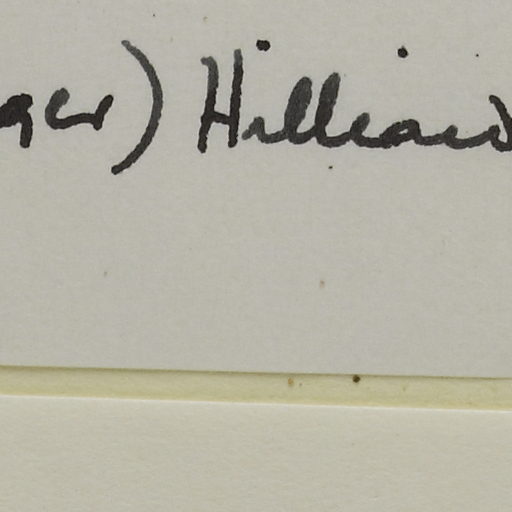 ger) Hilliard